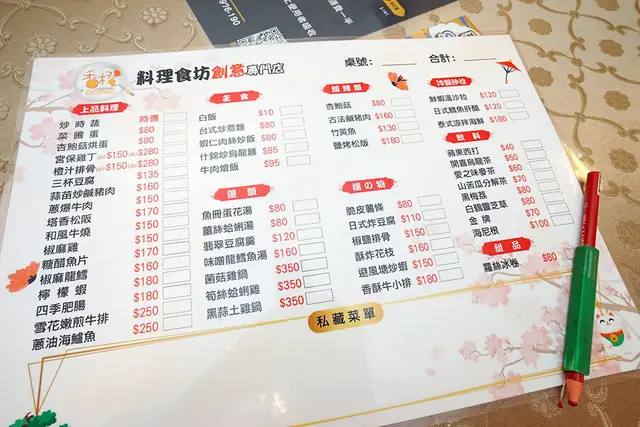 976-190
香根
料理食坊創意專門店
桌號：
合計：
上品料理
炒時蔬 時價
菜圃蛋 $80
杏鮑菇烘蛋 $80
宮保雞丁(小)$150(大)$280
橙汁排骨(小)$150(大)$280
三杯豆腐 $135
蒜苗炒鹹豬肉 $160
蔥爆牛肉 $150
塔香松阪 $170
和風牛燒 $150
椒麻雞 $150
糖醋魚片 $160
椒麻龍鱈 $180
檸檬蝦 $180
四季肥腸 $180
雪花嫩煎牛排 $250
蔥油海鱸魚 $250
主食
白飯 $10
台式炒意麵 $80
蝦仁肉絲炒飯 $80
什錦炒烏龍麵 $85
牛肉燴飯 $95
湯類
魚冊蛋花湯 $80
薑絲蛤蜊湯 $80
翡翠豆腐羹 $120
味噌龍鱈魚湯 $160
菌菇雞鍋 $350
筍絲蛤蜊雞 $350
黑蒜土雞鍋 $350
燒烤類
杏鮑菇 $80
古法鹹豬肉 $160
竹莢魚 $130
鹽烤松阪 $180
脆皮薯條 $80
日式炸豆腐 $110
椒鹽排骨 $150
酥炸花枝 $160
避風塘炒蝦 $150
香酥牛小排 $180
鮮蝦溫沙拉 $120
日式鱈魚肝醋 $120
泰式涼拌海鮮 $180
飲料
蘋果西打 $40
開喜烏龍茶 $50
愛之味麥茶 $60
山苦瓜分解茶 $60
黑梅荔 $80
白鶴靈芝草 $80
金牌 $70
海尼根 $100
甜品
蘿絲冰卷 $80
私藏菜單